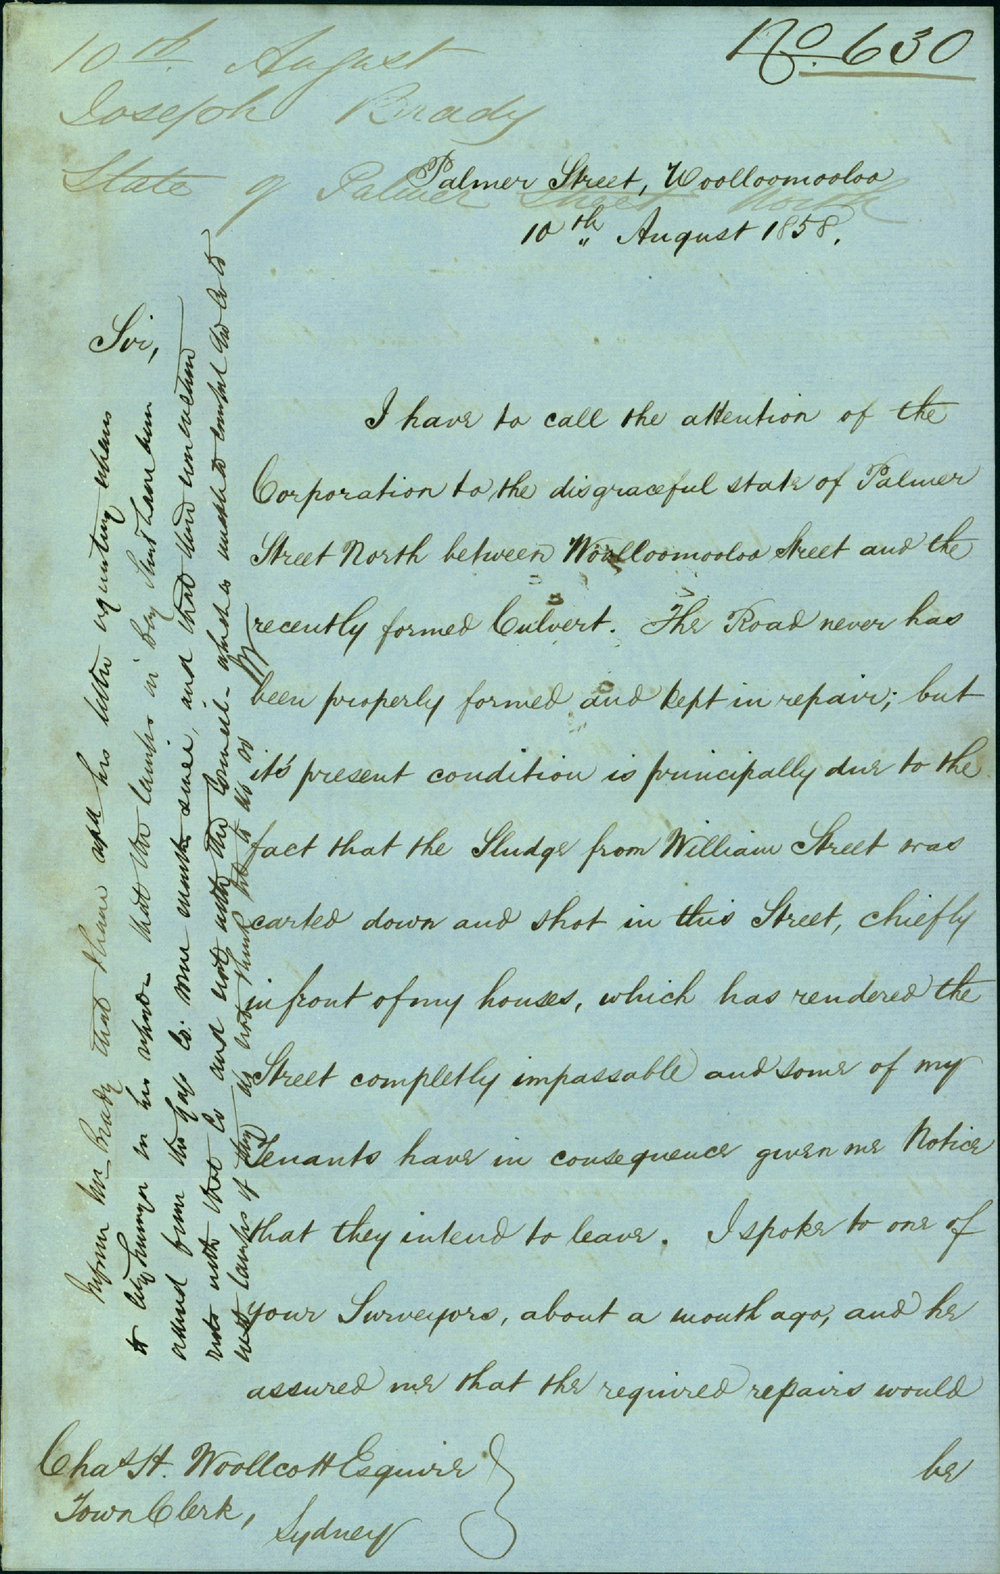 No. 630
10th August
Joseph Brady
State of Palmer Street North
Palmer Street, Woolloomooloo
10th August 1858.
Sir,
I have to call the attention of the
Corporation to the disgraceful state of Palmer
Street North between Woolloomooloo Street and the
recently formed Culvert. The Road never has
been properly formed and kept in repair; but
it's present condition is principally due to the
fact that the Sludge from William Street was
carted down and shot in this Street, chiefly
in front of my houses, which has rendered the
Street completly impassable and some of my
Tenants have in consequence given me Notice
that they intend to leave. I spoke to one of
your Surveyors, about a month ago, and he
assured me that the required repairs would
be
Chas H. Woollcott Esquire
Town Clerk,
Sydney
Inform Mr Brady that I have his letter requesting
to City in his that the lamps in Bay Street have been
from the Gas Co. some months since, and that their connection
rests with that Co and not with the Council
lamps if they do not think fit to do so